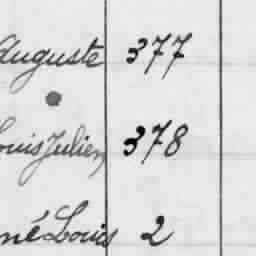 Auguste 377
Louis Julien 378
né Louis 2